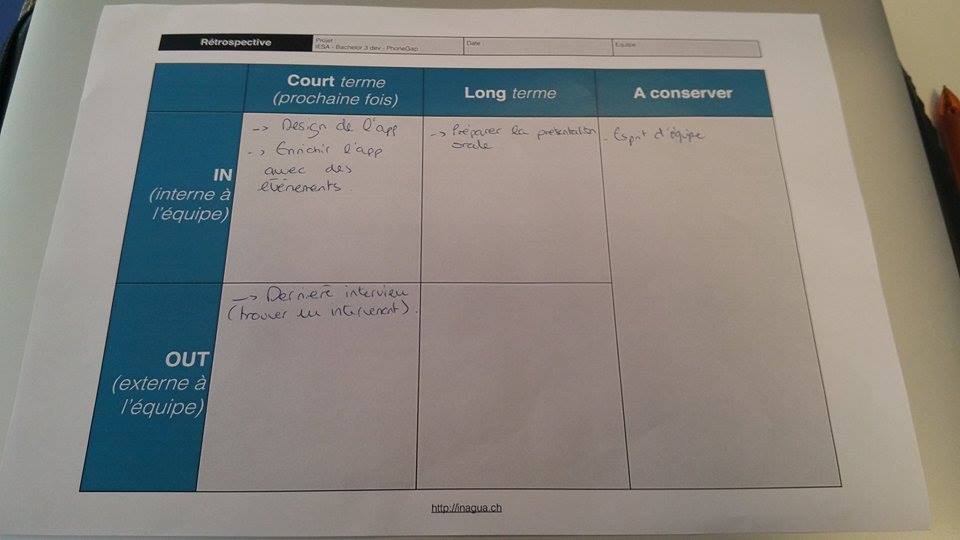 Rétrospective
Projet :
IESA - Bachelor 3 dev - PhoneGap
Date :
Equipe
Court terme
(prochaine fois)
Long terme
A conserver
IN
(interne à
l'équipe)
-> Design de l'app
-> Enrichir l'app
avec des
événements.
-> Préparer la presentation
orale
. Esprit d'équipe
OUT
(externe à
l'équipe)
-> Dernière interview
(trouver un intervenant).
http://inagua.ch